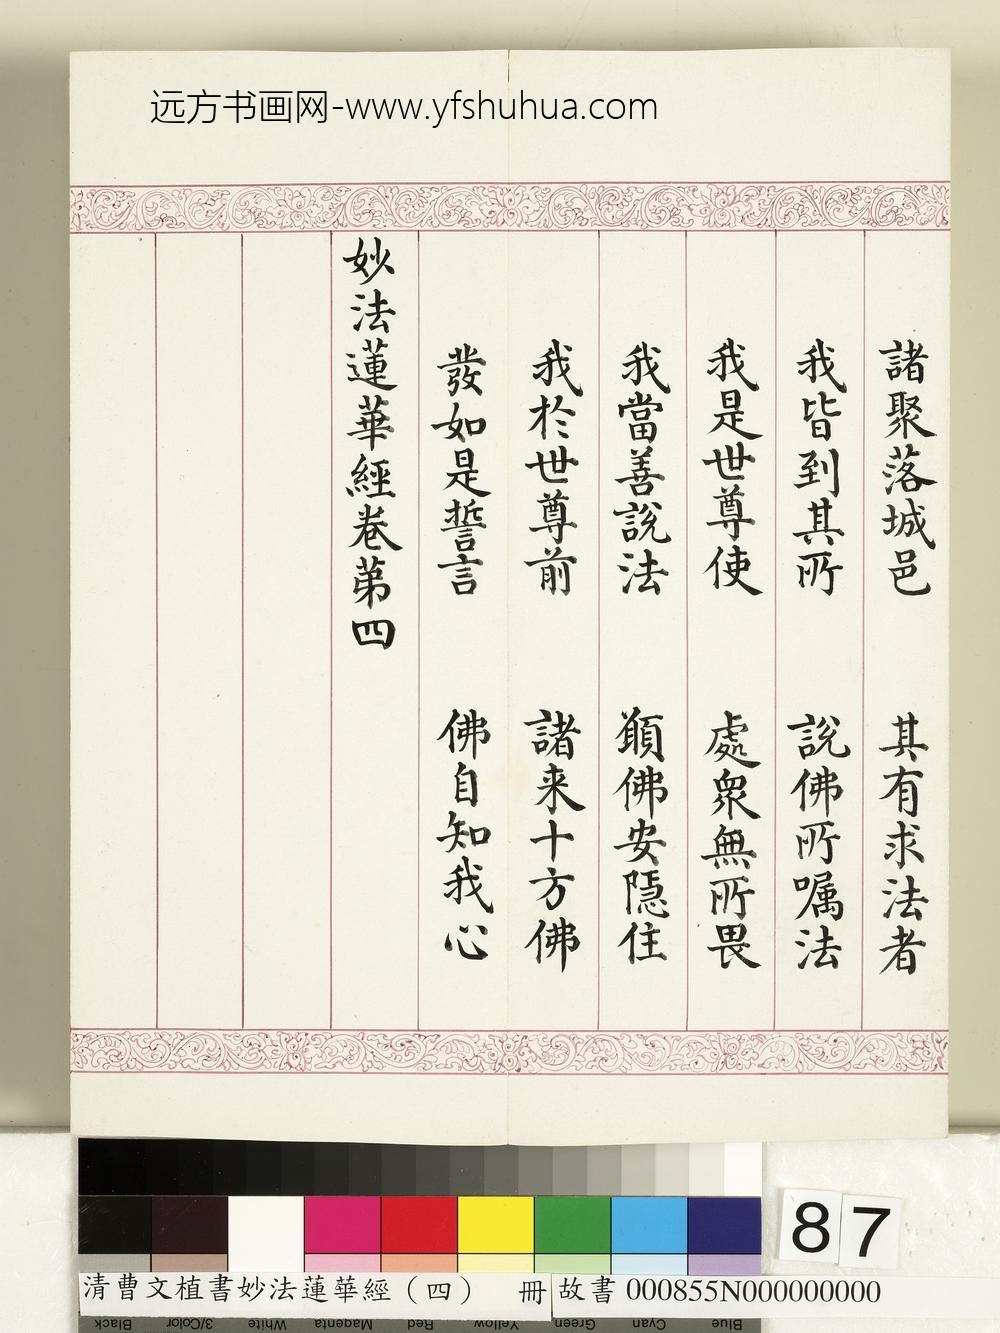 远方书画网-www.yfshuhua.com
諸聚落城邑 其有求法者
我皆到其所 說佛所嘱法
我是世尊使 處衆無所畏
我當善說法 願佛安隱住
我於世尊前 諸来十方佛
發如是誓言 佛自知我心
妙法蓮華經卷第四
87
清曹文植書妙法蓮華經（四） 冊 故書 000855N000000000
Black 3/Color White Magenta Red Yellow Green Cyan Blue